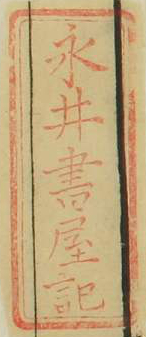 永井書屋記